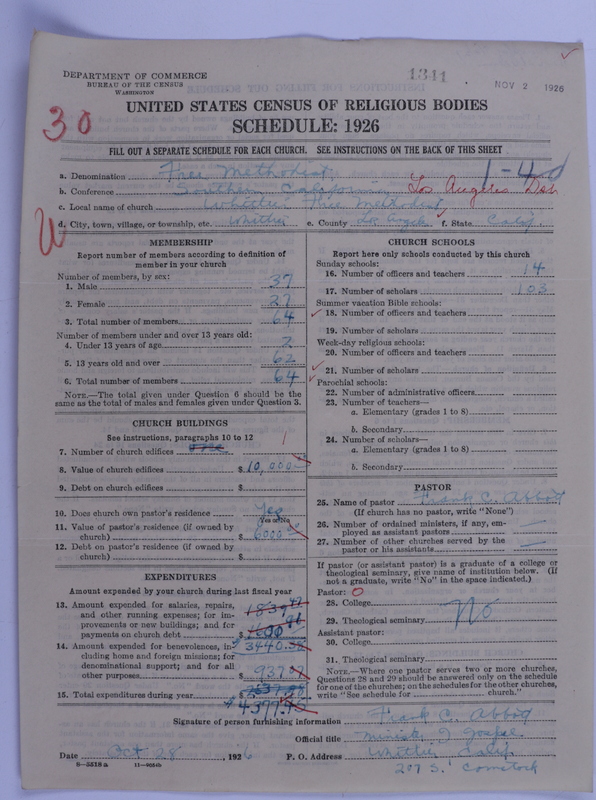 1341
NOV 2 1926
DEPARTMENT OF COMMERCE
BUREAU OF THE CENSUS
WASHINGTON
UNITED STATES CENSUS OF RELIGIOUS BODIES
SCHEDULE: 1926
30
FILL OUT A SEPARATE SCHEDULE FOR EACH CHURCH. SEE INSTRUCTIONS ON THE BACK OF THIS SHEET
a. Denomination Free Methodist
b. Conference Southern California Los Angeles Dist
c. Local name of church Whittier Free Methodist
d. City, town, village, or township, etc. Whittier e. County Los Angeles f. State Calif.
MEMBERSHIP
Report number of members according to definition of
member in your church
Number of members, by sex:
1. Male 37
2. Female 27
3. Total number of members 64
Number of members under and over 13 years old:
4. Under 13 years of age 2
5. 13 years old and over 62
6. Total number of members 64
NOTE.—The total given under Question 6 should be
same as the total of males and females given under Question 3.
CHURCH BUILDINGS
See instructions, paragraphs 10 to 12
7. Number of church edifices 1
8. Value of church edifices $ 10,000
9. Debt on church edifices $
10. Does church own pastor's residence Yes
Yes or No
11. Value of pastor's residence (if owned by
church) $ 6000
12. Debt on pastor's residence (if owned by
church) $
EXPENDITURES
Amount expended by your church during last fiscal year
13. Amount expended for salaries, repairs,
and other running expenses; for im-
provements or new buildings; and for
payments on church debt $ 3440
14. Amount expended for benevolences, in-
cluding home and foreign missions; for
denominational support; and for all
other purposes $ 937
15. Total expenditures during year $ 4377
CHURCH SCHOOLS
Report here only schools conducted by this church
Sunday schools:
16. Number of officers and teachers 14
17. Number of scholars 103
Summer vacation Bible schools:
18. Number of officers and teachers
19. Number of scholars
Week-day religious schools:
20. Number of officers and teachers
21. Number of scholars
Parochial schools:
22. Number of administrative officers
23. Number of teachers—
a. Elementary (grades 1 to 8)
b. Secondary
24. Number of scholars—
a. Elementary (grades 1 to 8)
b. Secondary
PASTOR
25. Name of pastor Frank C. Abbott
(If church has no pastor, write "None")
26. Number of ordained ministers, if any, em-
ployed as assistant pastors
27. Number of other churches served by the
pastor or his assistants
If pastor (or assistant pastor) is a graduate of a college or
theological seminary, give name of institution below. (If
not a graduate, write "No" in the space indicated.)
Pastor:
28. College
29. Theological seminary No
Assistant pastor:
30. College
31. Theological seminary
NOTE.—Where one pastor serves two or more churches,
Questions 28 and 29 should be answered only on the schedule
for one of the churches; on the schedules for the other churches,
write "See schedule for church."
Signature of person furnishing information Frank C. Abbott
Official title Minister of Gospel
Date Oct 28, 1926 P. O. Address Whittier Calif
207 S. Comstock
8—5518 a 11—9054b